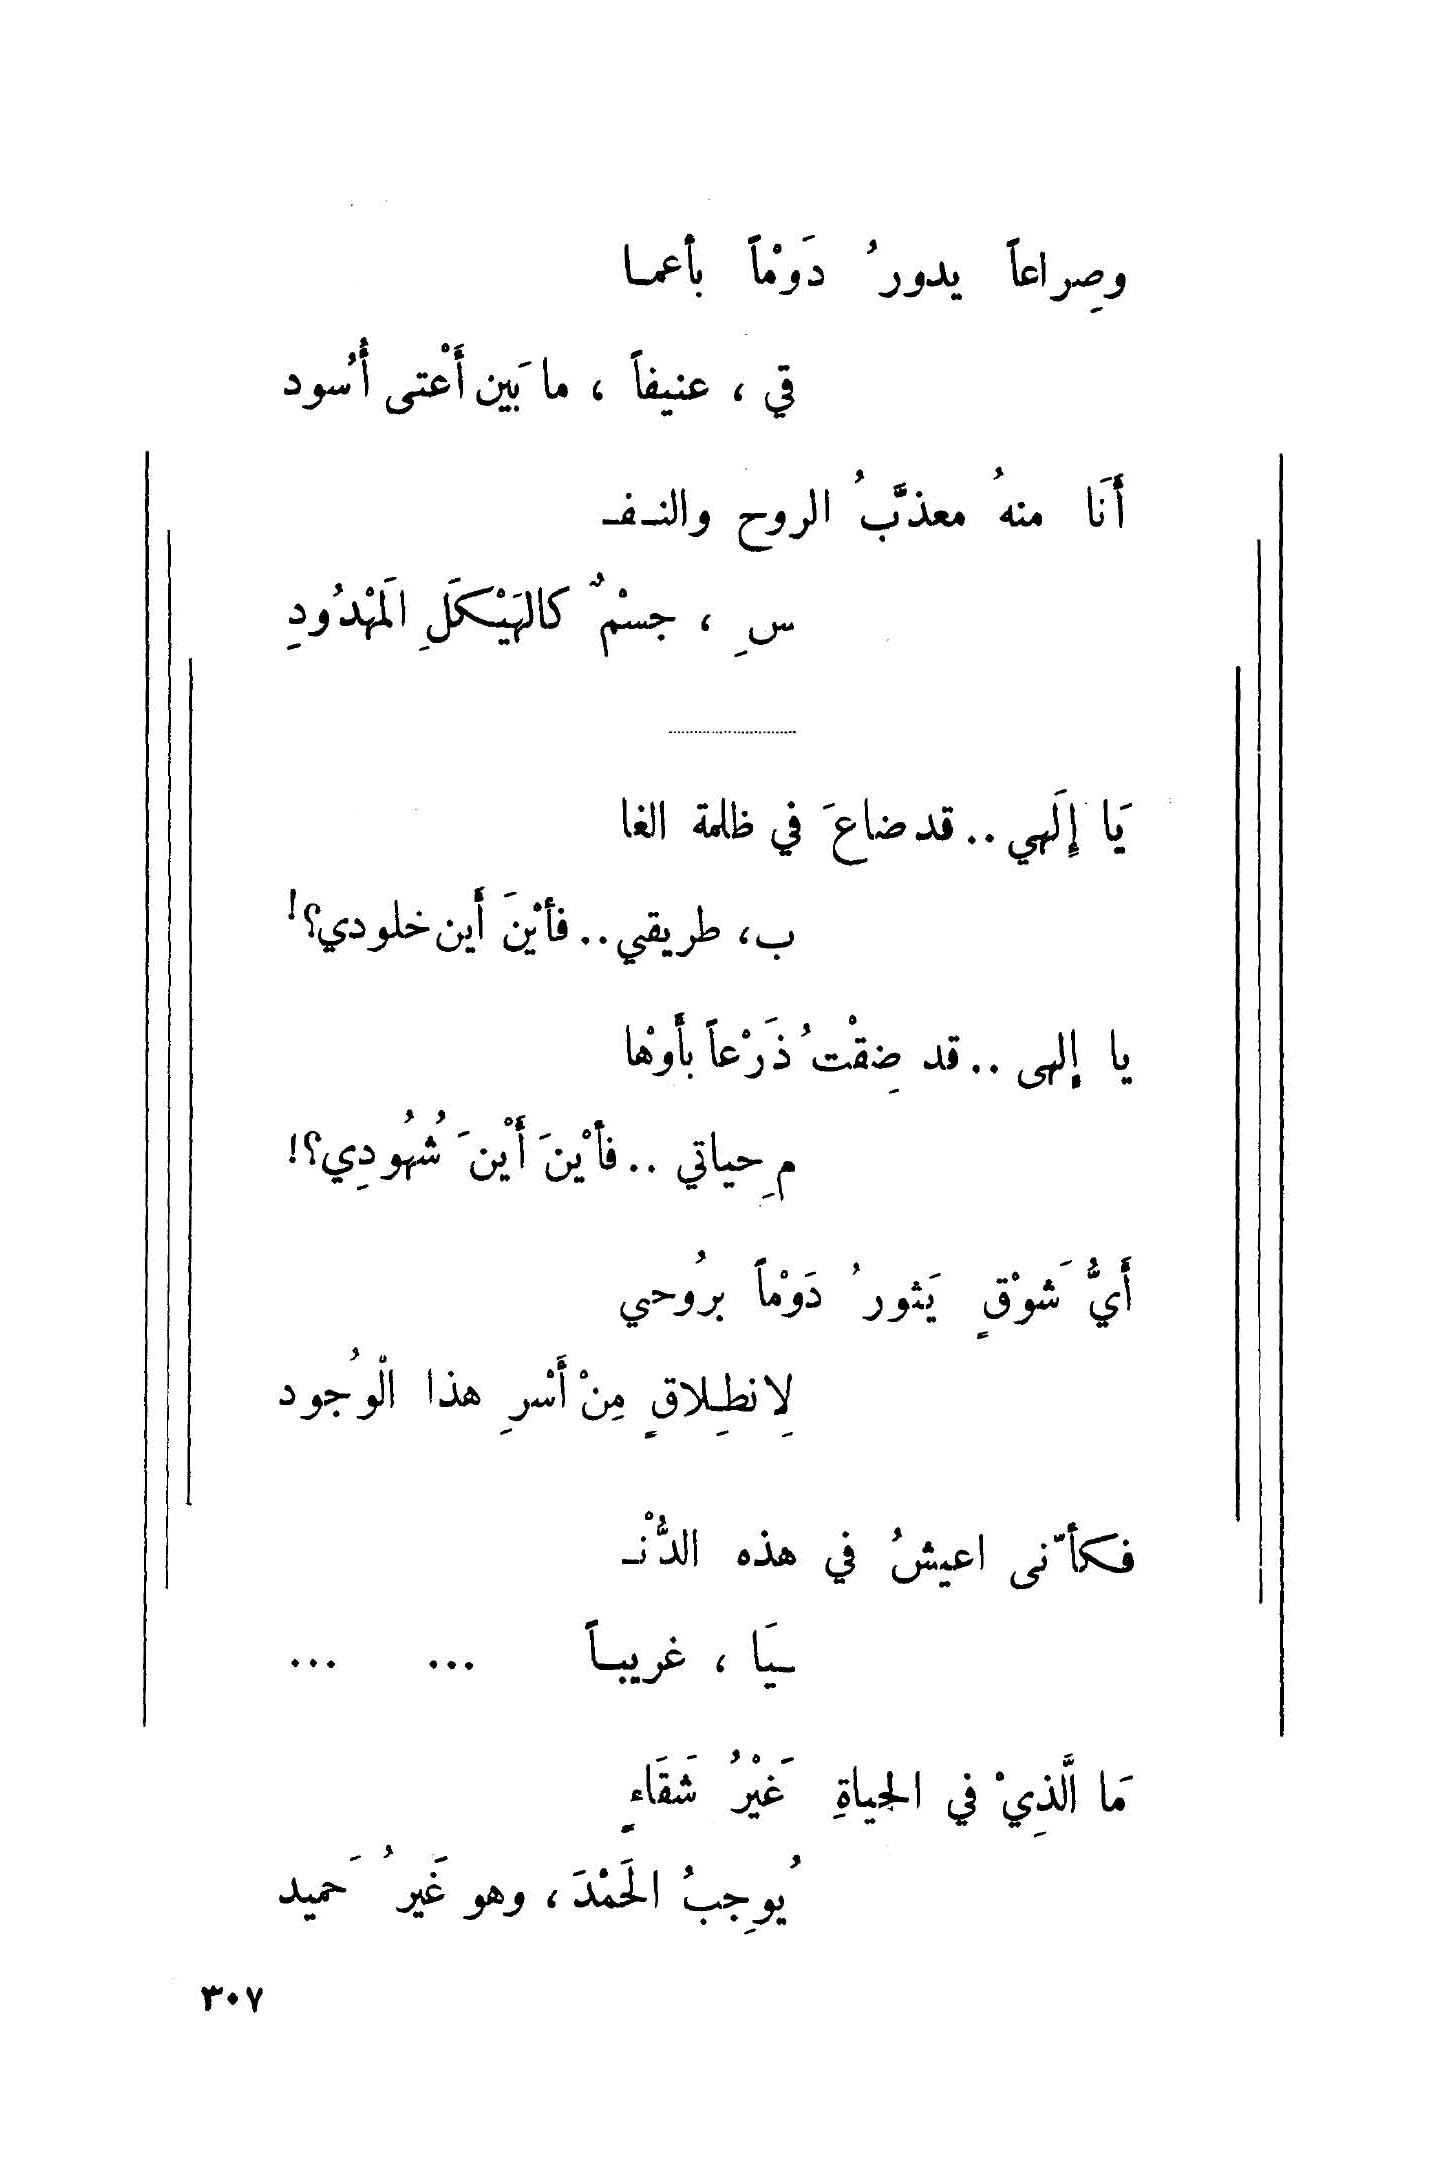 وصِراعاً يدورُ دَوْماً بأعمـا
قي ، عنيفاً ، ما بَين أَعْتى أُسود
أَنَا منهُ معذَّبُ الروح والنـفـ
سِ ، جسْمٌ كالهَيْكَلِ المَهْدُودِ
يَا إِلَهي .. قد ضاعَ في ظلمة الغا
ب، طريقي .. فأيْنَ أَين خلودي؟!
يا إلهى .. قد ضِقْتُ ذَرْعاً بأَوْها
مِ حياتي .. فأيْنَ أَيْنَ شُهُودِي؟!
أَيُّ شَوْقٍ يَثورُ دَوْماً برُوحي
لِانطِلاقٍ مِنْ أَسْرِ هذا الْوُجود
فكأنّى اعيشُ في هذه الدُّنْـ
ـيَا ، غريبـاً ... ...
مَا الَّذِيْ في الحياةِ غَيْرُ شَقَاءٍ
يُوجِبُ الحَمْدَ ، وهو غَيرُ حَميد
٣٠٧